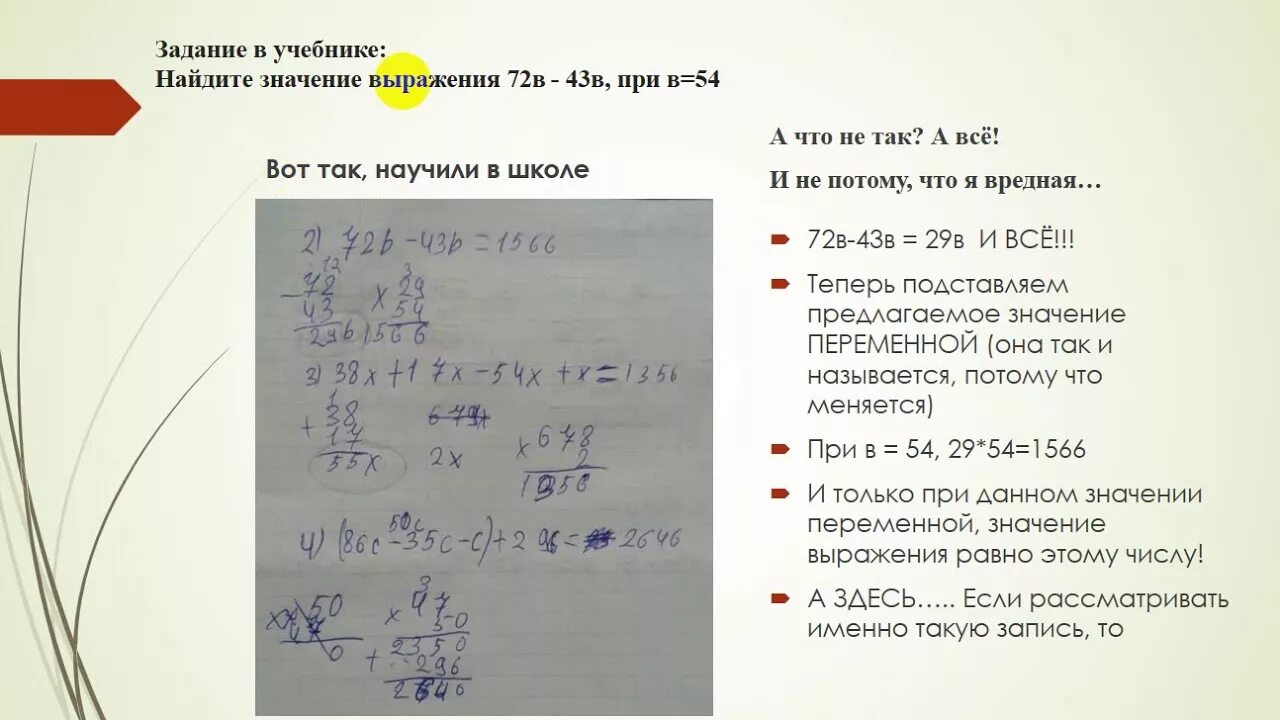 Задание в учебнике:
Найдите значение выражения 72в - 43в, при в=54
Вот так, научили в школе
2) 72b - 43b = 1566
12
3
- 72
x 29
43
54
29b
1566
3) 38x + 17x - 54x + x = 1356
1
+ 38
17
55x
2x
x 678
2
50c
4) (86c - 35c - c) + 296 = 2646
50
0
3
x 47
50
2350
+ 296
А что не так? А всё!
И не потому, что я вредная…
72в-43в = 29в И ВСЁ!!!
Теперь подставляем
предлагаемое значение
ПЕРЕМЕННОЙ (она так и
называется, потому что
меняется)
При в = 54, 29*54=1566
И только при данном значении
переменной, значение
выражения равно этому числу!
А ЗДЕСЬ….. Если рассматривать
именно такую запись, то